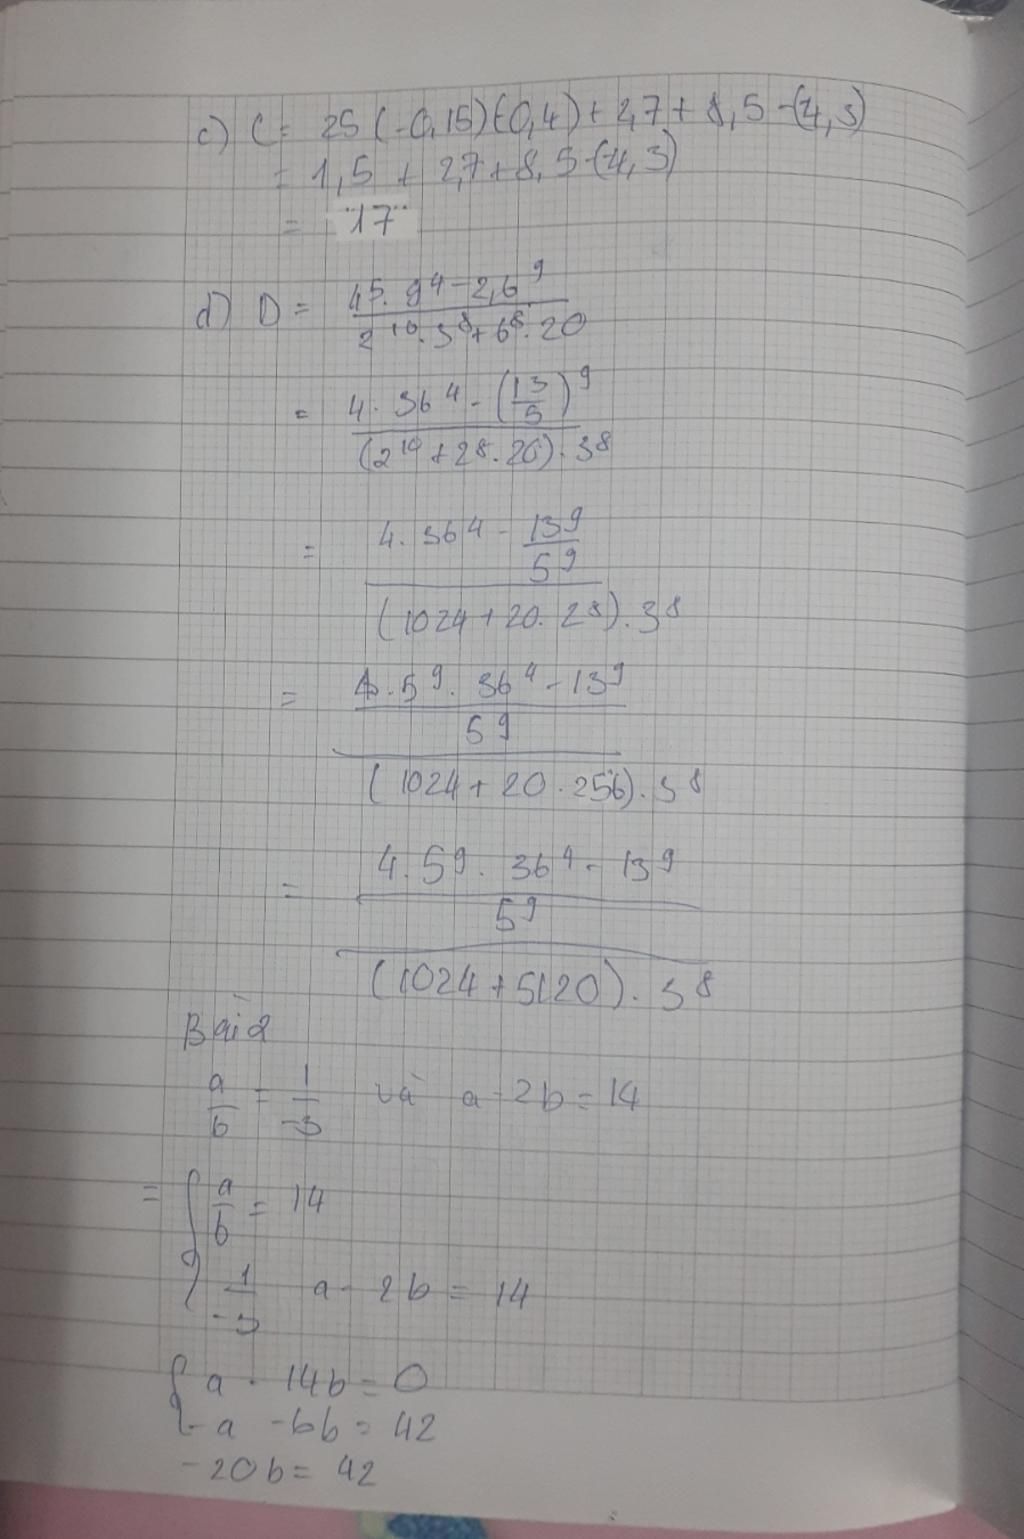 c) C = 25 (-0,15)(-0,4) + 2,7 + 8,5 - (-4,3)
= 1,5 + 2,7 + 8,5 - (-4,3)
= 17
d) D = \frac{4^5 . 9^4 - 2,6^9}{2^{10} . 3^8 + 6^8 . 20}
= \frac{4 . 36^4 - (\frac{13}{5})^9}{(2^{10} + 2^8 . 20) . 3^8}
= \frac{4 . 36^4 - \frac{13^9}{5^9}}{(1024 + 20 . 2^8) . 3^8}
= \frac{\frac{4 . 5^9 . 36^4 - 13^9}{5^9}}{(1024 + 20 . 256) . 3^8}
= \frac{\frac{4 . 5^9 . 36^4 - 13^9}{5^9}}{(1024 + 5120) . 3^8}
Bài 2
\frac{a}{b} = \frac{1}{-3} và a - 2b = 14
= { \frac{a}{b} = 14
\frac{1}{-3} a - 2b = 14
{ a - 14b = 0
- a - 6b = 42
- 20b = 42